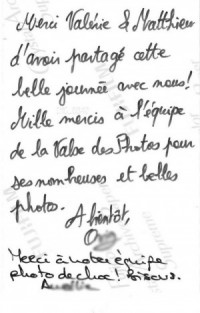 Merci Valérie & Matthieu
d'avoir partagé cette
belle journée avec nous!
Mille mercis à l'équipe
de la Valse des Photos pour
ses nombreuses et belles
photos.
A bientôt,
Merci à notre équipe
photo de choc! Bisous.